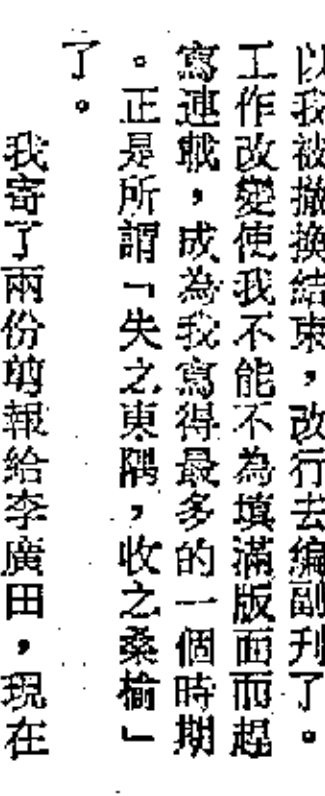 以我被撤換結束，改行去編副刋了。
工作改變使我不能不為填滿版面而趕
寫連載，成為我寫得最多的一個時期
。正是所謂「失之東隅，收之桑榆」
了。
我寄了兩份剪報給李廣田，現在